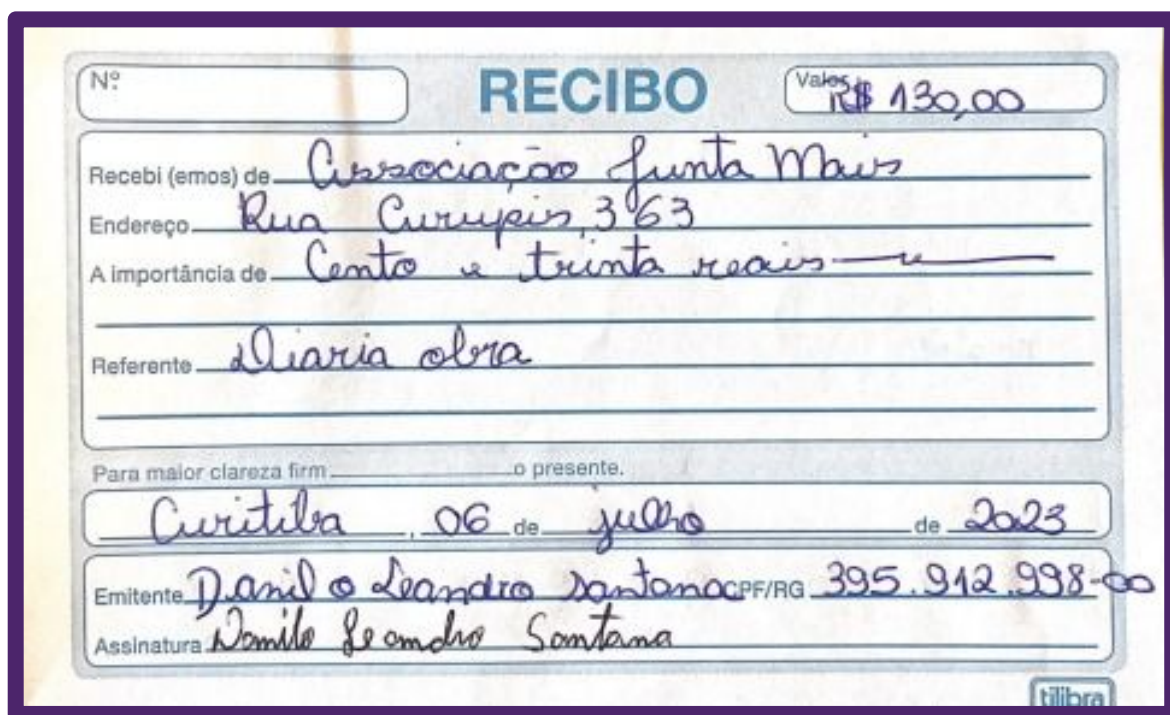 Nº
RECIBO
Valor R$ 130,00
Recebi (emos) de Associação Junta Mais
Endereço Rua Curupis, 363
A importância de Cento e trinta reais
Referente Diaria obra
Para maior clareza firm o presente.
Curitiba, 06 de julho de 2023
Emitente Danilo Leandro Santana CPF/RG 395.912.998-00
Assinatura Danilo Leandro Santana
tilibra